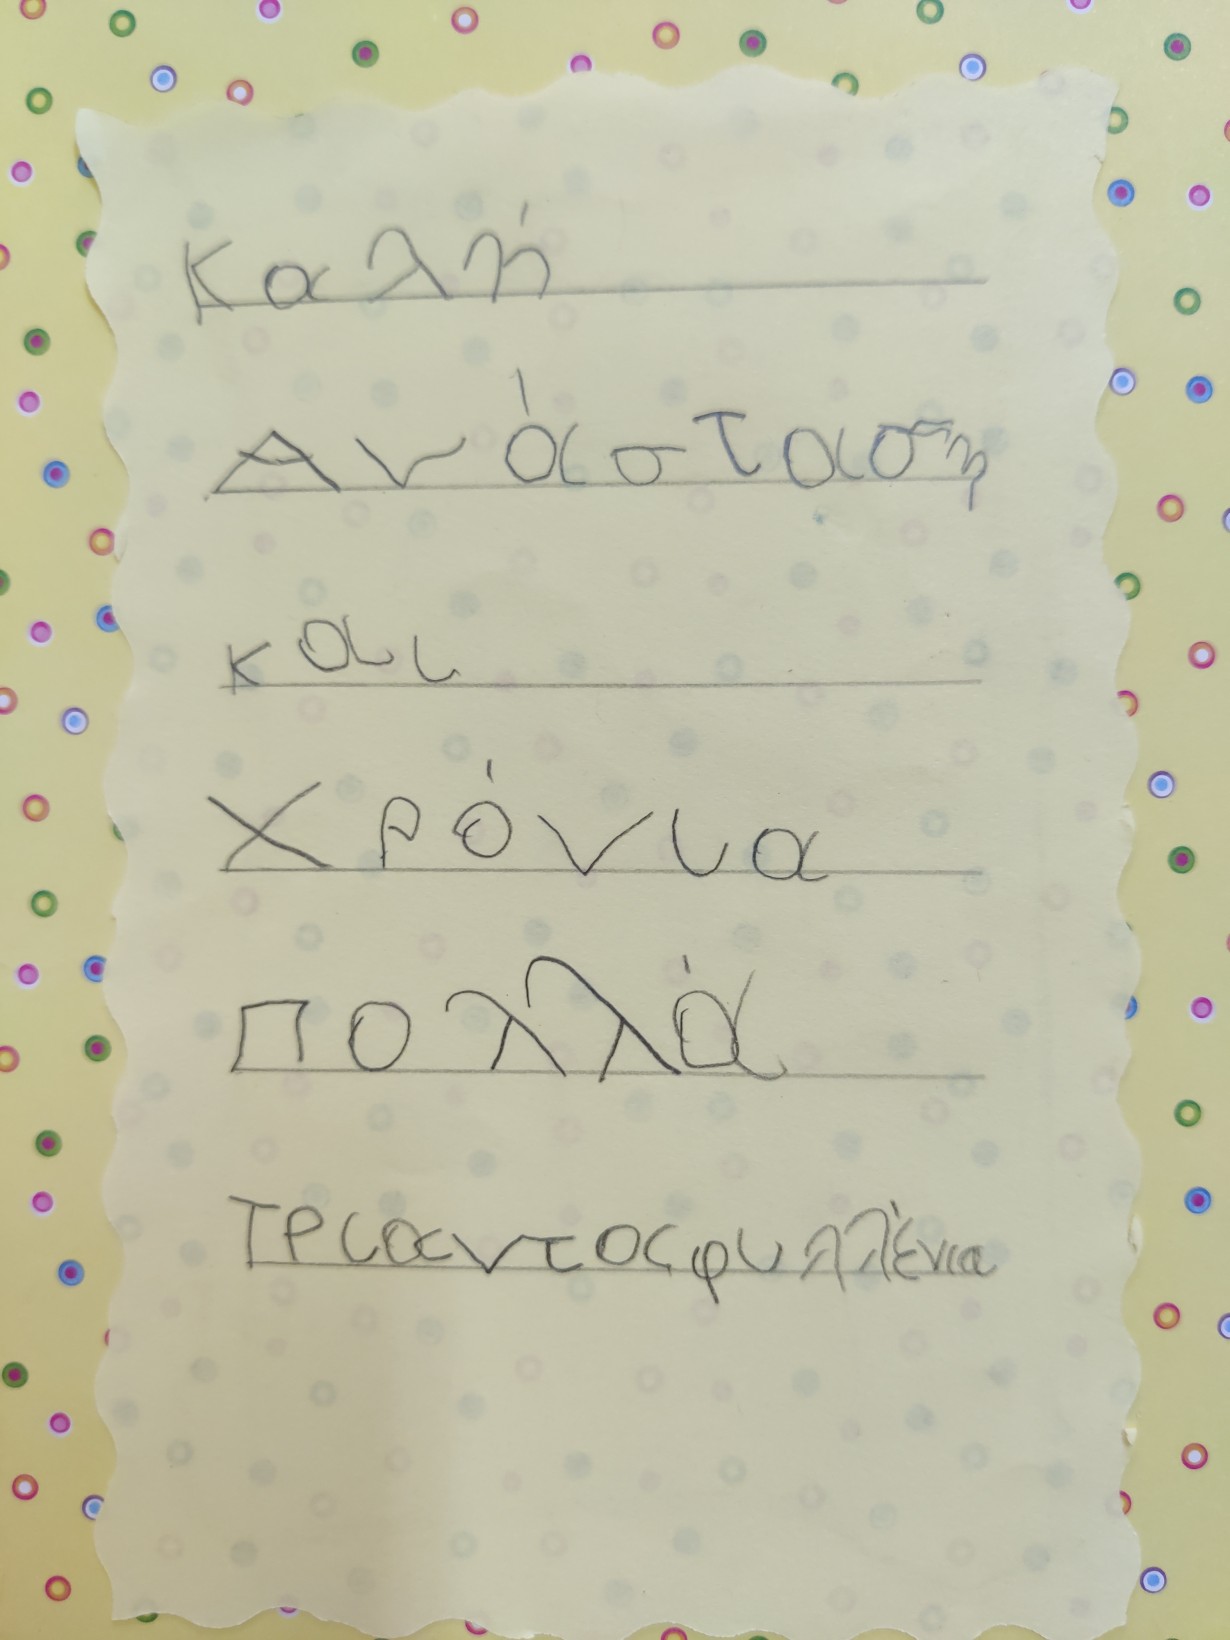 Καλή
Ανάσταση
και
Χρόνια
πολλά
Τριανταφυλλένια